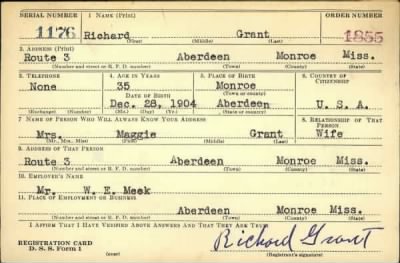 SERIAL NUMBER 1. NAME (Print) ORDER NUMBER
1176 Richard Grant 1855
(First) (Middle) (Last)
2. ADDRESS (Print)
Route 3 Aberdeen Monroe Miss.
(Number and street or R. F. D. number) (Town) (County) (State)
3. TELEPHONE 4. AGE IN YEARS 5. PLACE OF BIRTH 6. COUNTRY OF CITIZENSHIP
None 35 Monroe
DATE OF BIRTH (Town or county)
Dec. 28, 1904 Aberdeen U. S. A.
(Exchange) (Number) (Mo.) (Day) (Yr.) (State or country)
7. NAME OF PERSON WHO WILL ALWAYS KNOW YOUR ADDRESS 8. RELATIONSHIP OF THAT PERSON
Mrs. Maggie Grant Wife
(Mr., Mrs., Miss) (First) (Middle) (Last)
9. ADDRESS OF THAT PERSON
Route 3 Aberdeen Monroe Miss.
(Number and street or R. F. D. number) (Town) (County) (State)
10. EMPLOYER'S NAME
Mr. W. E. Meek
11. PLACE OF EMPLOYMENT OR BUSINESS
Aberdeen Monroe Miss.
(Number and street or R. F. D. number) (Town) (County) (State)
I AFFIRM THAT I HAVE VERIFIED ABOVE ANSWERS AND THAT THEY ARE TRUE.
REGISTRATION CARD Richard Grant
D. S. S. Form 1 (over) (Registrant's signature)